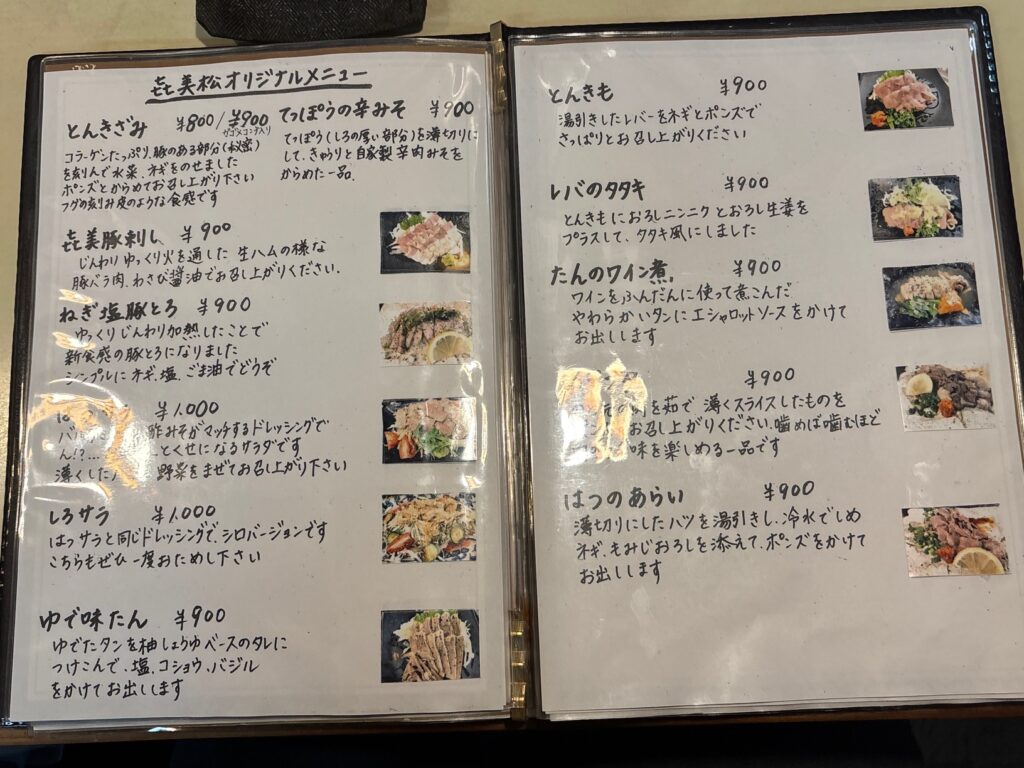 㐂美松オリジナルメニュー
とんきざみ ¥800/¥900
ガゴメコンブ入り
コラーゲンたっぷり、豚のある部分(秘密)
を刻んで水菜、ネギをのせました
ポンズとからめてお召し上がり下さい
フグの刻み皮のような食感です
てっぽうの辛みそ ¥900
てっぽう(しろの厚い部分)を薄切りに
して、きゅうりと自家製辛肉みそを
からめた一品。
㐂美豚刺し ¥900
じんわりゆっくり火を通した生ハムの様な
豚バラ肉、わさび醤油でお召し上がりください。
ねぎ塩豚とろ ¥900
ゆっくりじんわり加熱したことで
新食感の豚とろになりました
シンプルにネギ、塩、ごま油でどうぞ
¥1.000
酢みそがマッチするドレッシングで
ん!?... とくせになるサラダです
薄くした 野菜をまぜてお召し上がり下さい
しろサラ ¥1.000
はつサラと同じドレッシングで、シロバージョンです
こちらもぜひ一度おためし下さい
ゆで味たん ¥900
ゆでたタンを柚しょうゆベースのタレに
つけこんで、塩、コショウ、バジル
をかけてお出しします
とんきも ¥900
湯引きしたレバーをネギとポンズで
さっぱりとお召し上がりください
レバのタタキ ¥900
とんきもにおろしニンニクとおろし生姜を
プラスして、タタキ風にしました
たんのワイン煮 ¥900
ワインをふんだんに使って煮こんだ
やわらかいタンにエシャロットソースをかけて
お出しします
¥900
を茹で薄くスライスしたものを
お召し上がりください、噛めば噛むほど
味を楽しめる一品です
はつのあらい ¥900
薄切りにしたハツを湯引きし、冷水でしめ
ネギ、もみじおろしを添えて、ポンズをかけて
お出しします